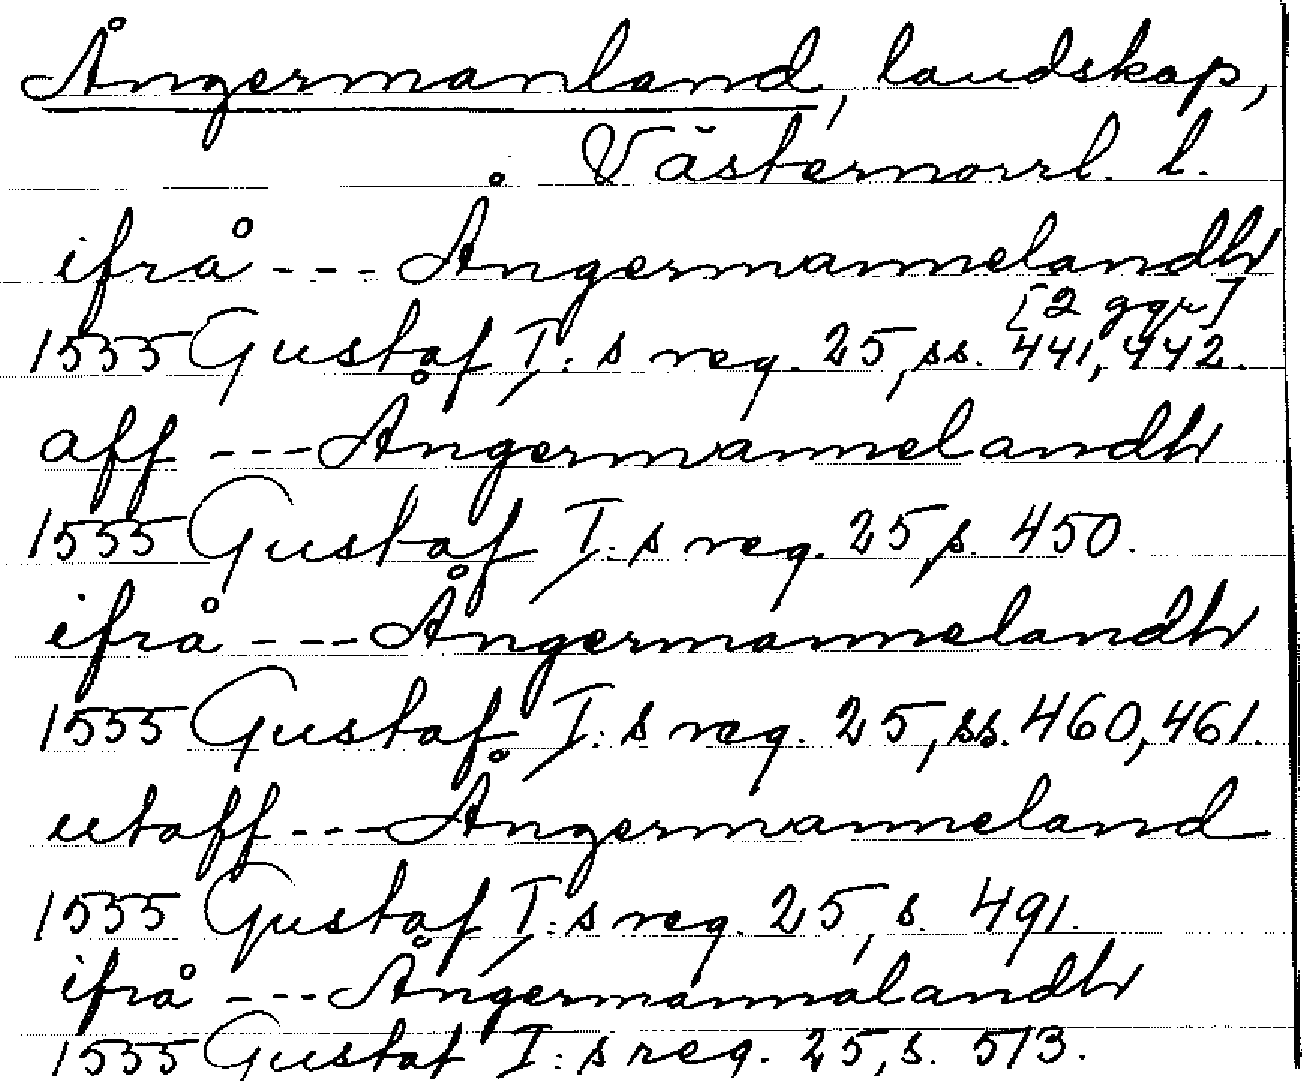 Ångermanland, landskap,
Västernorrl. l.
ifrå --- Ångermannelandh
[2 ggr]
1555 Gustaf I:s reg. 25, ss. 441, 442.
aff --- Ångermannelandh
1555 Gustaf I:s reg. 25 s. 450.
ifrå --- Ångermannelandh
1555 Gustaf I:s reg. 25, ss. 460, 461.
utaff --- Ångermanneland
1555 Gustaf I:s reg. 25, s. 491.
ifrå --- Ångermannalandh
1555 Gustaf I:s reg. 25, s. 513.